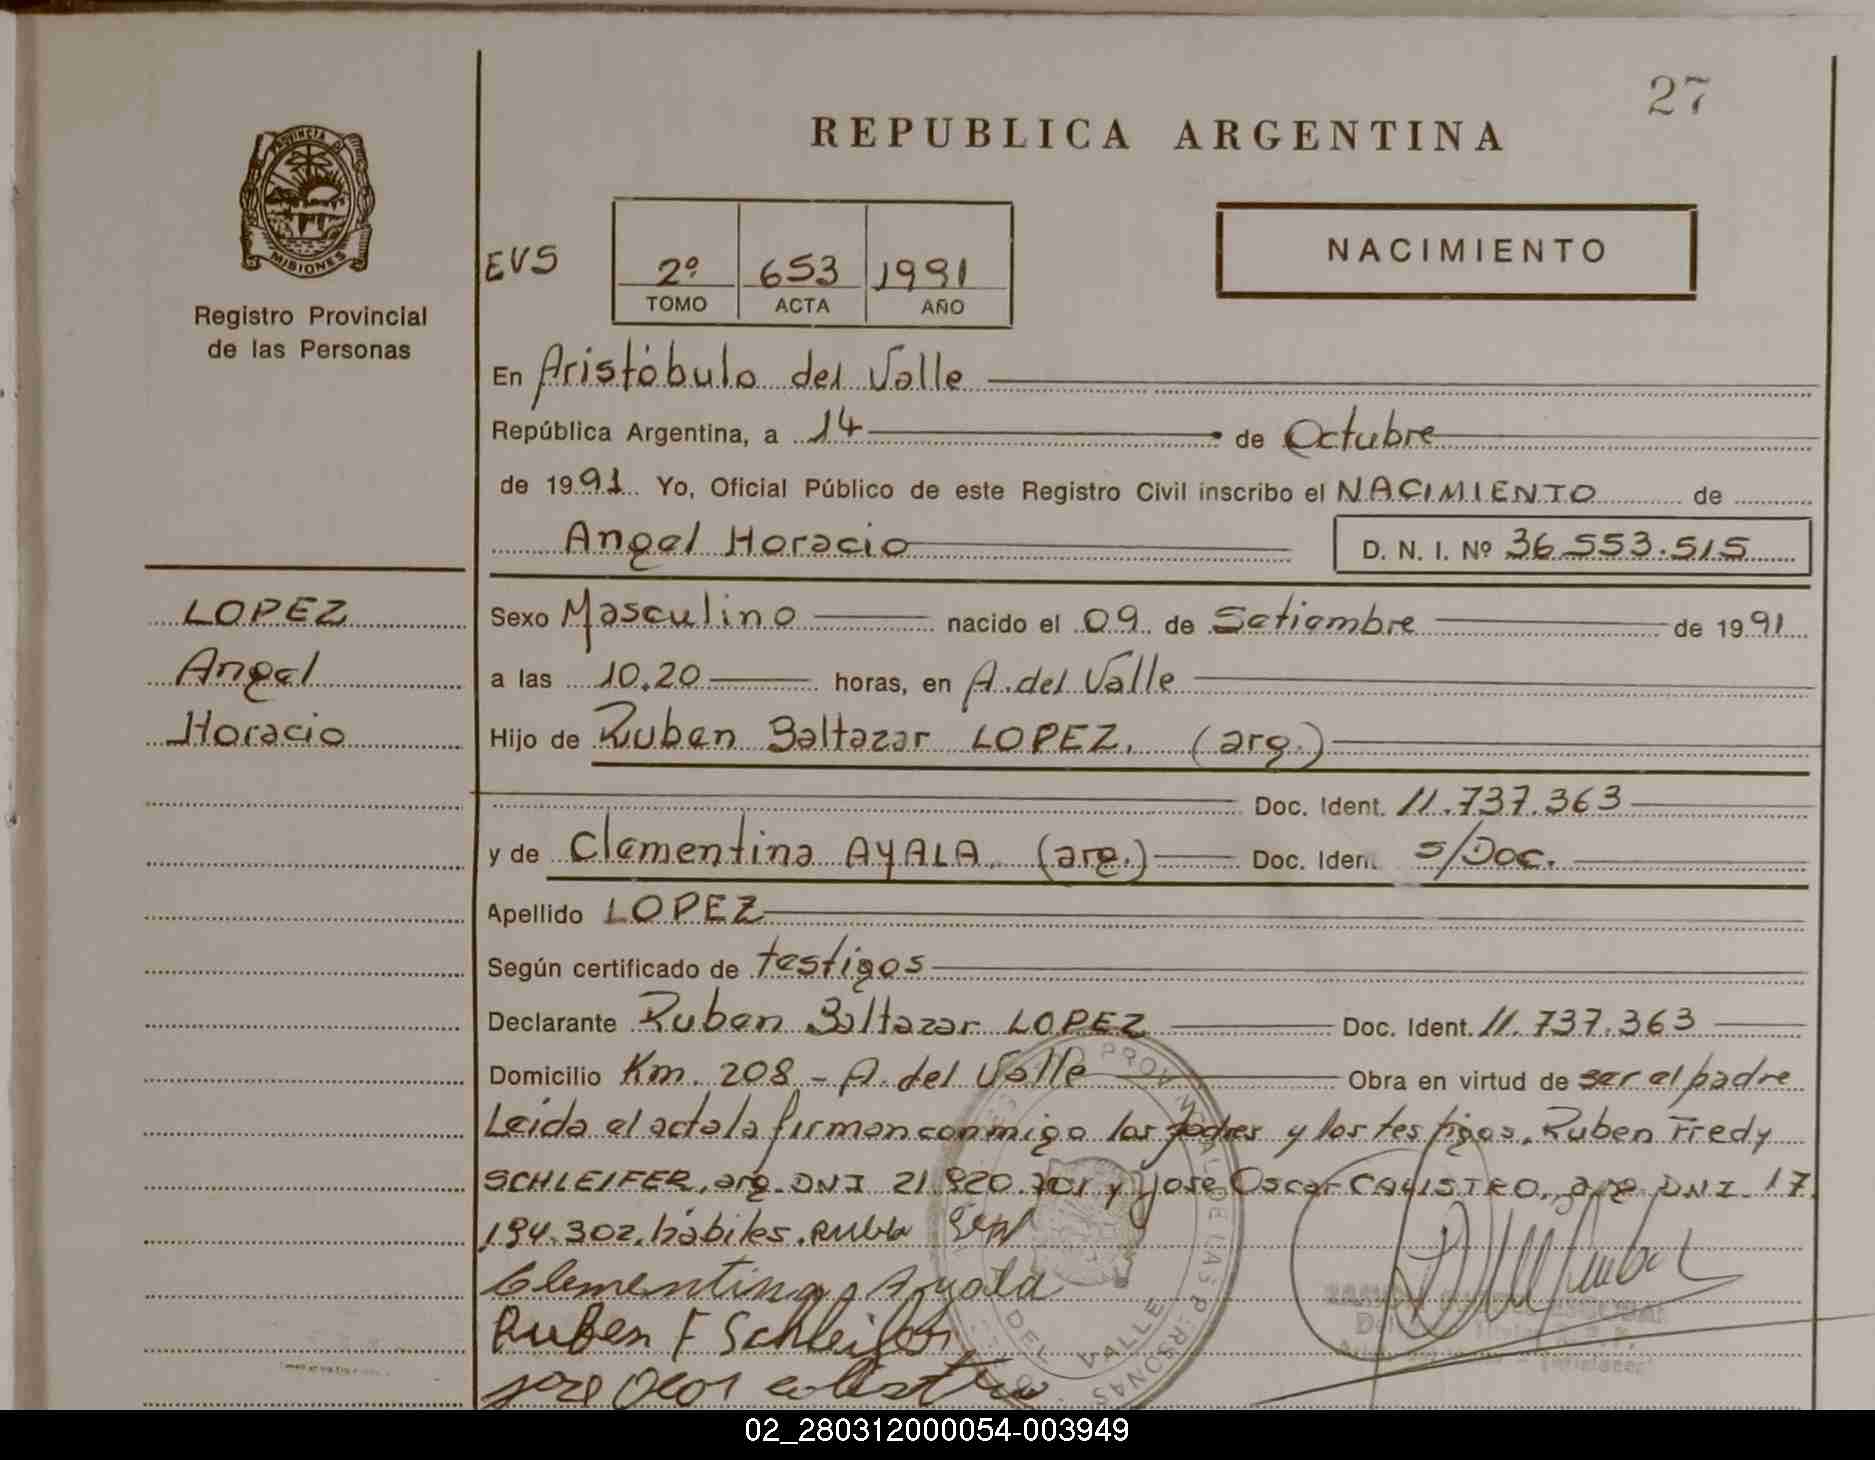 27
REPUBLICA ARGENTINA
PROVINCIA DE
MISIONES
Registro Provincial
de las Personas
EVS
2º 653 1991
TOMO ACTA AÑO
NACIMIENTO
En Aristóbulo del Valle
República Argentina, a 14 de Octubre
de 1991 Yo, Oficial Público de este Registro Civil inscribo el NACIMIENTO de
Angel Horacio D. N. I. Nº 36.553.515
LOPEZ
Angel
Horacio
Sexo Masculino nacido el 09 de Setiembre de 1991
a las 10.20 horas, en A. del Valle
Hijo de Ruben Baltazar LOPEZ. (arg.)
Doc. Ident. 11.737.363
y de Clementina AYALA. (arg.) Doc. Iden. s/Doc.
Apellido LOPEZ
Según certificado de testigos
Declarante Ruben Baltazar LOPEZ Doc. Ident. 11.737.363
Domicilio Km. 208 - A. del Valle Obra en virtud de ser el padre
Leida el acta la firman conmigo los padres y los testigos. Ruben Fredy
SCHLEIFER, arg. DNI 21.920. y Jose Oscar CALISTRO, arg DNI. 17.
194.302. hábiles.
Clementina Ayala
Ruben F Schleifer
DEL VALLE
02_280312000054-003949